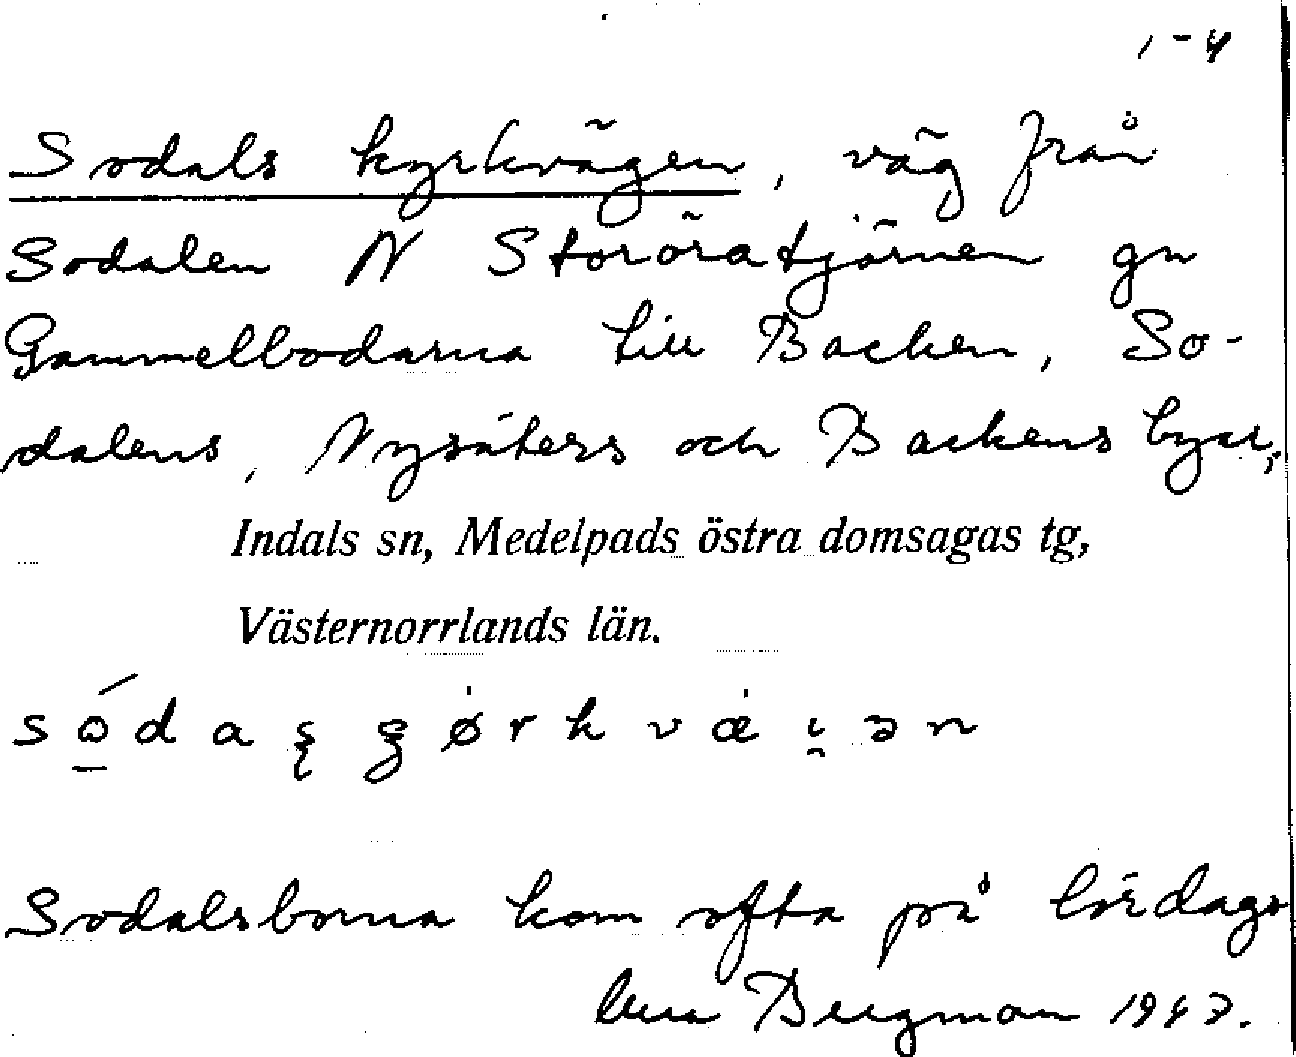 1-4
Sodals kyrkvägen, väg från
Sodalen N Storöratjärnen gn
Gammelbodarna till Backen, So-
dalens, Nysäters och Backens byar,
Indals sn, Medelpads östra domsagas tg,
Västernorrlands län.
Sodalsborna kom ofta på lördags
Bergman 19